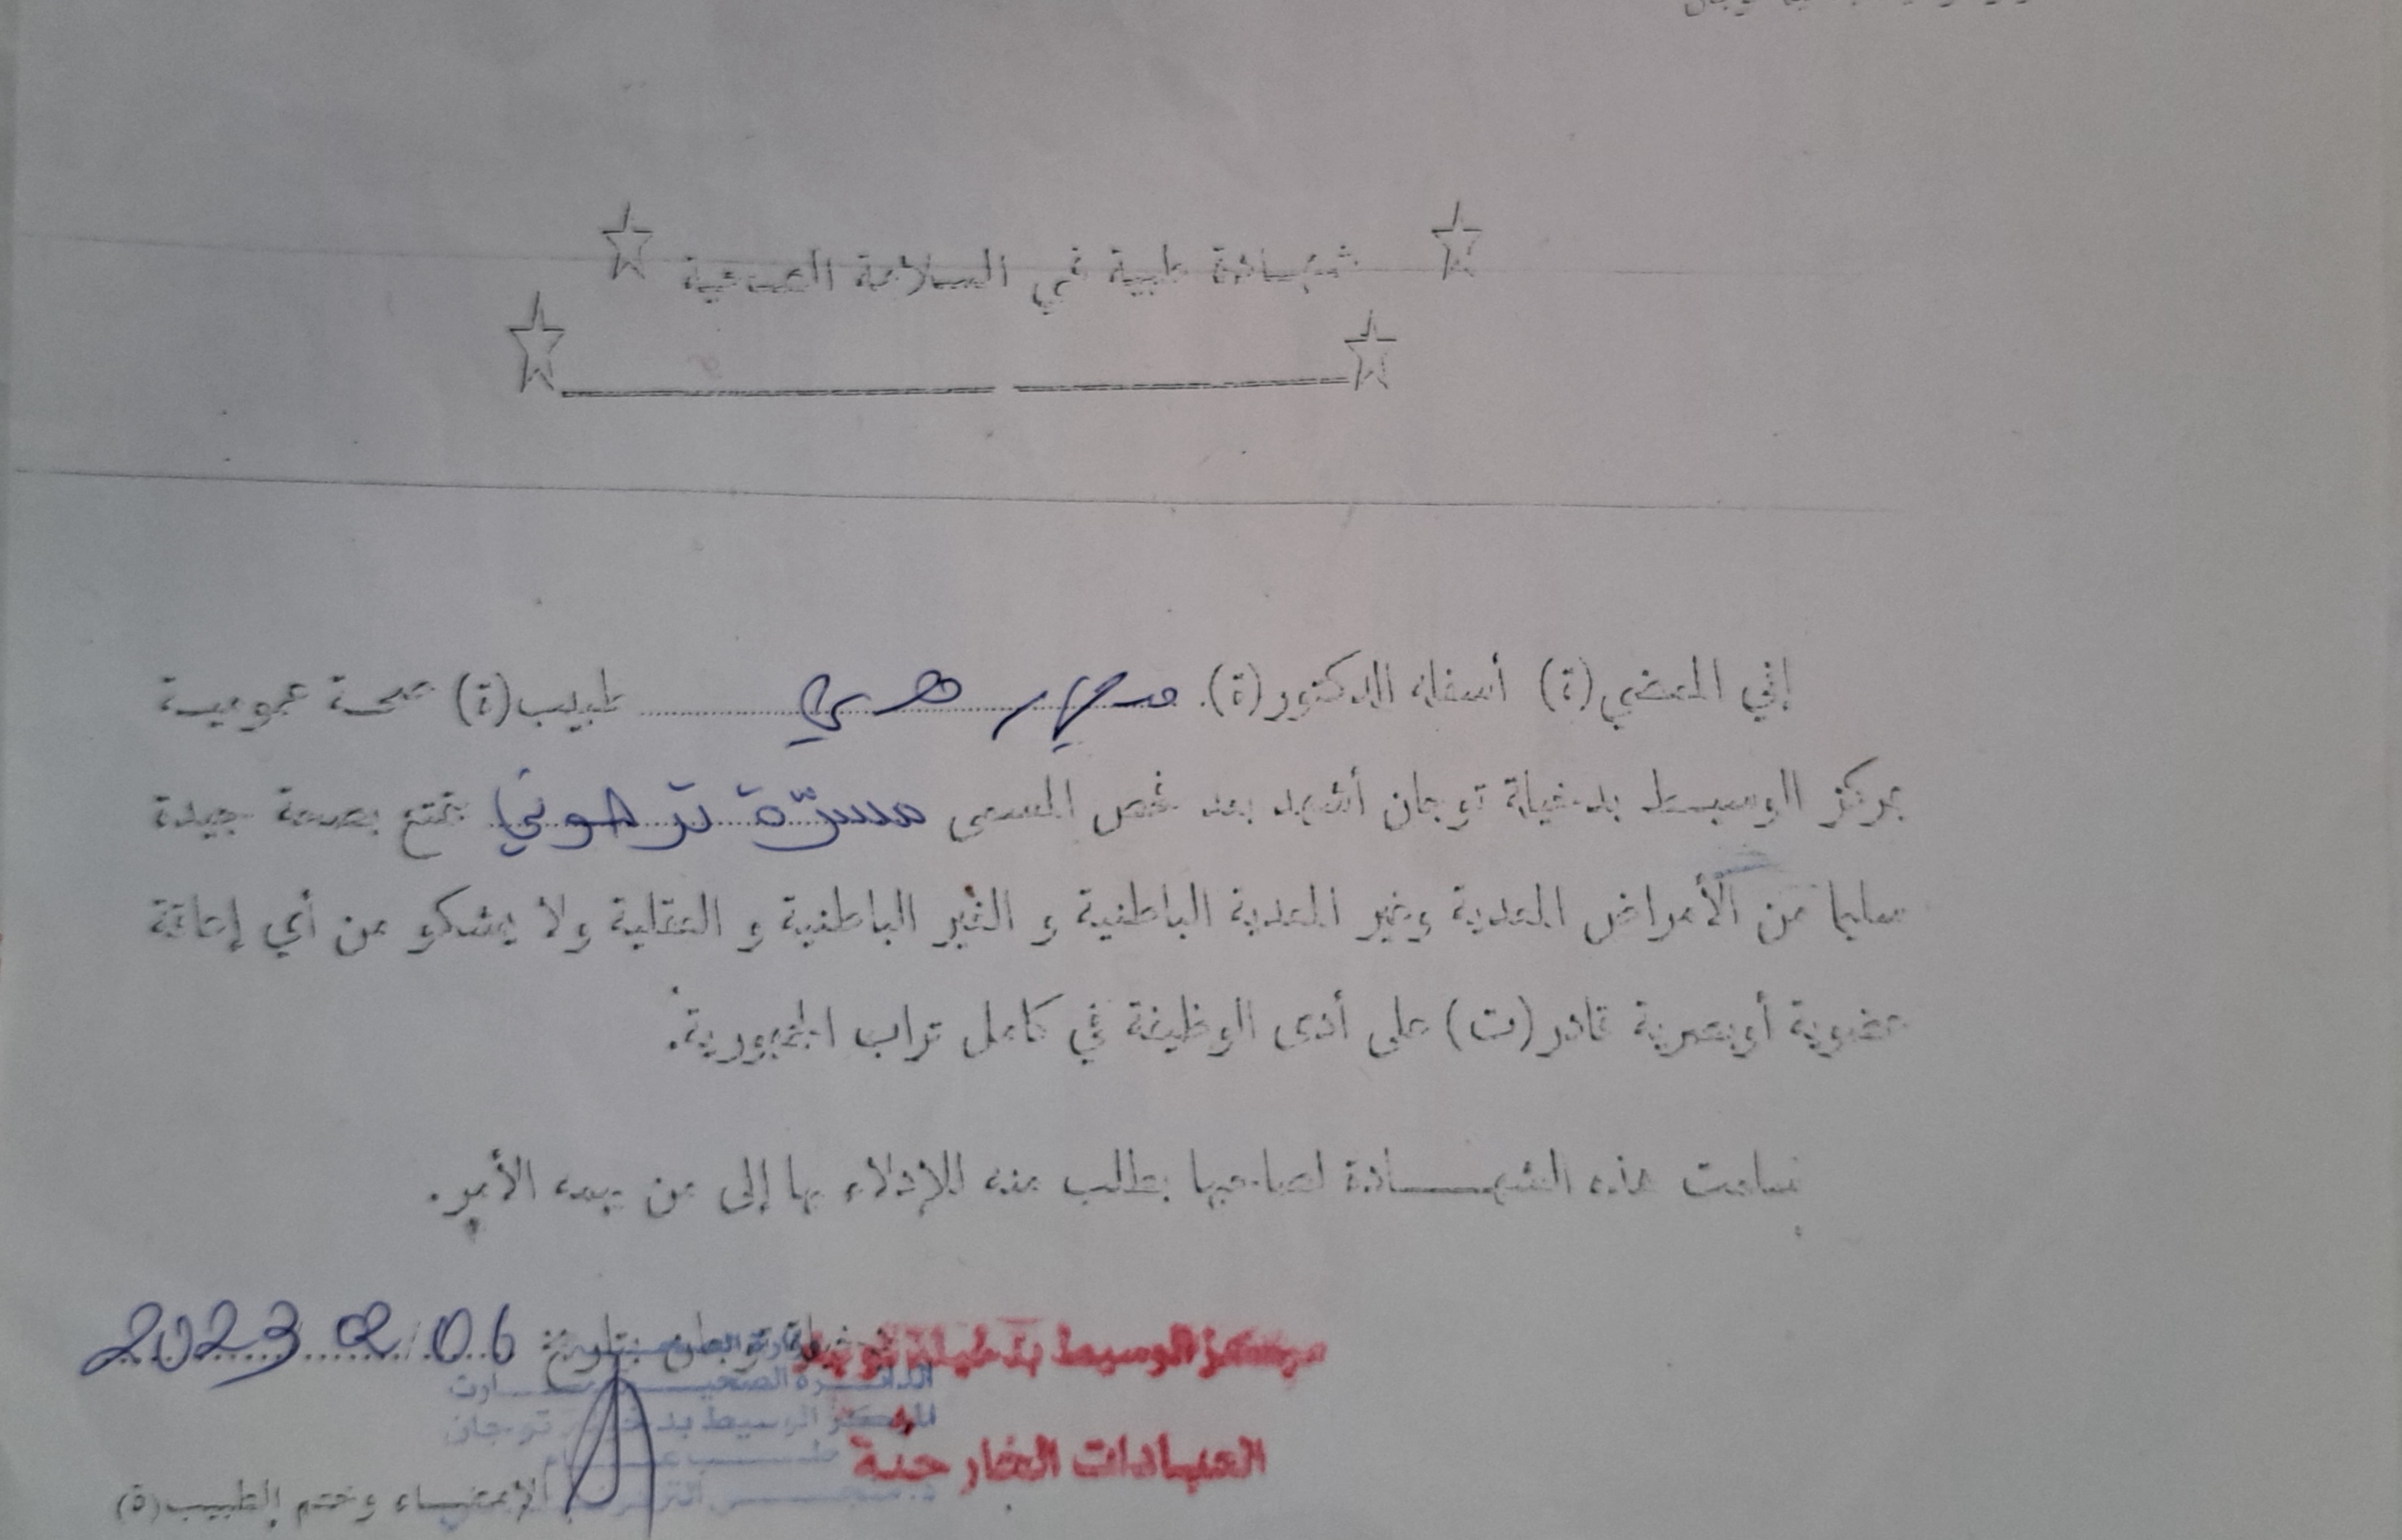 شهادة طبية في السلامة الصحية
إني الممضي(ة) أسفله الدكتور(ة). طبيب(ة) صحة عمومية
بمركز الوسيط بدخيلة توجان أشهد بعد فحص المسمى مسرّة ترهوني يتمتع بصحة جيدة
سليما من الأمراض المعدية وغير المعدية الباطنية و الغير الباطنية و العقلية ولا يشكو من أي إعاقة
عضوية أوبصرية قادر(ت) على أدى الوظيفة في كامل تراب الجمهورية.
سلمت هذه الشهادة لصاحبها بطلب منه للإدلاء بها إلى من يهمه الأمر.
مركز الوسيط بدخيلة توجان
بتاريخ 06/02/2023
المركز الوسيط بدخيلة توجان
العيادات الخارجية
الإمضاء وختم الطبيب(ة)